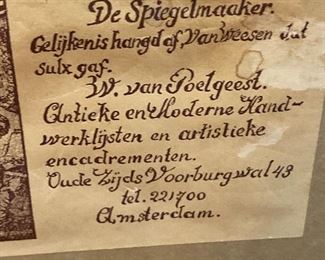 De Spiegelmaaker.
Gelijkenis hangd af Van Weesen dat
sulx gaf.
W. van Poelgeest.
Antieke en Moderne Hand-
werklijsten en artistieke
encadrementen.
Oude Zijds Voorburgwal 43
tel. 221700
Amsterdam.